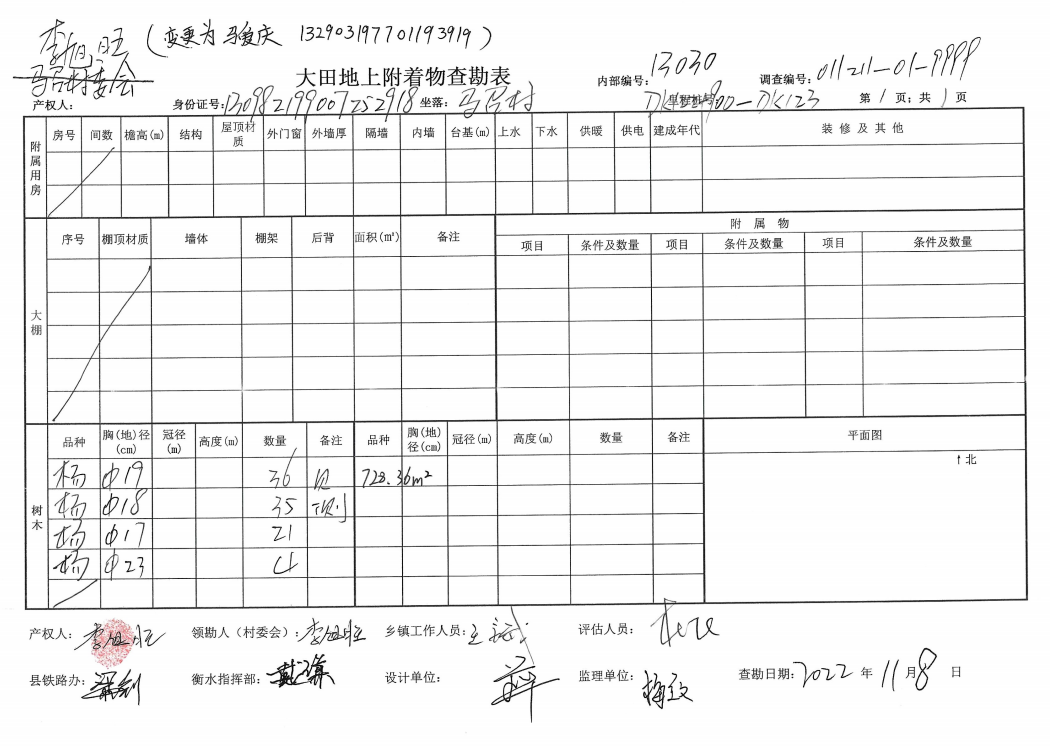 李旭旺(变更为马爱庆 132903197701193919)
马召村委会
大田地上附着物查勘表
内部编号: 13030 调查编号: 011211-01-9999
产权人: 身份证号: 130982199007252918 坐落: 马召村 里程桩号 第1页;共1页
附属用房 房号 间数 檐高(m) 结构 屋顶材质 外门窗 外墙厚 隔墙 内墙 台基(m) 上水 下水 供暖 供电 建成年代 装修及其他
大棚 序号 棚顶材质 墙体 棚架 后背 面积(㎡) 备注 附属物
项目 条件及数量 项目 条件及数量 项目 条件及数量
树木 品种 胸(地)径(cm) 冠径(m) 高度(m) 数量 备注 品种 胸(地)径(cm) 冠径(m) 高度(m) 数量 备注 平面图
↑北
杨 φ19 36 728.36m²
杨 φ18 35
杨 φ17 21
杨 φ23 4
产权人: 李旭旺 领勘人(村委会): 李旭旺 乡镇工作人员: 评估人员:
县铁路办: 衡水指挥部: 设计单位: 监理单位: 查勘日期: 2022年11月8日